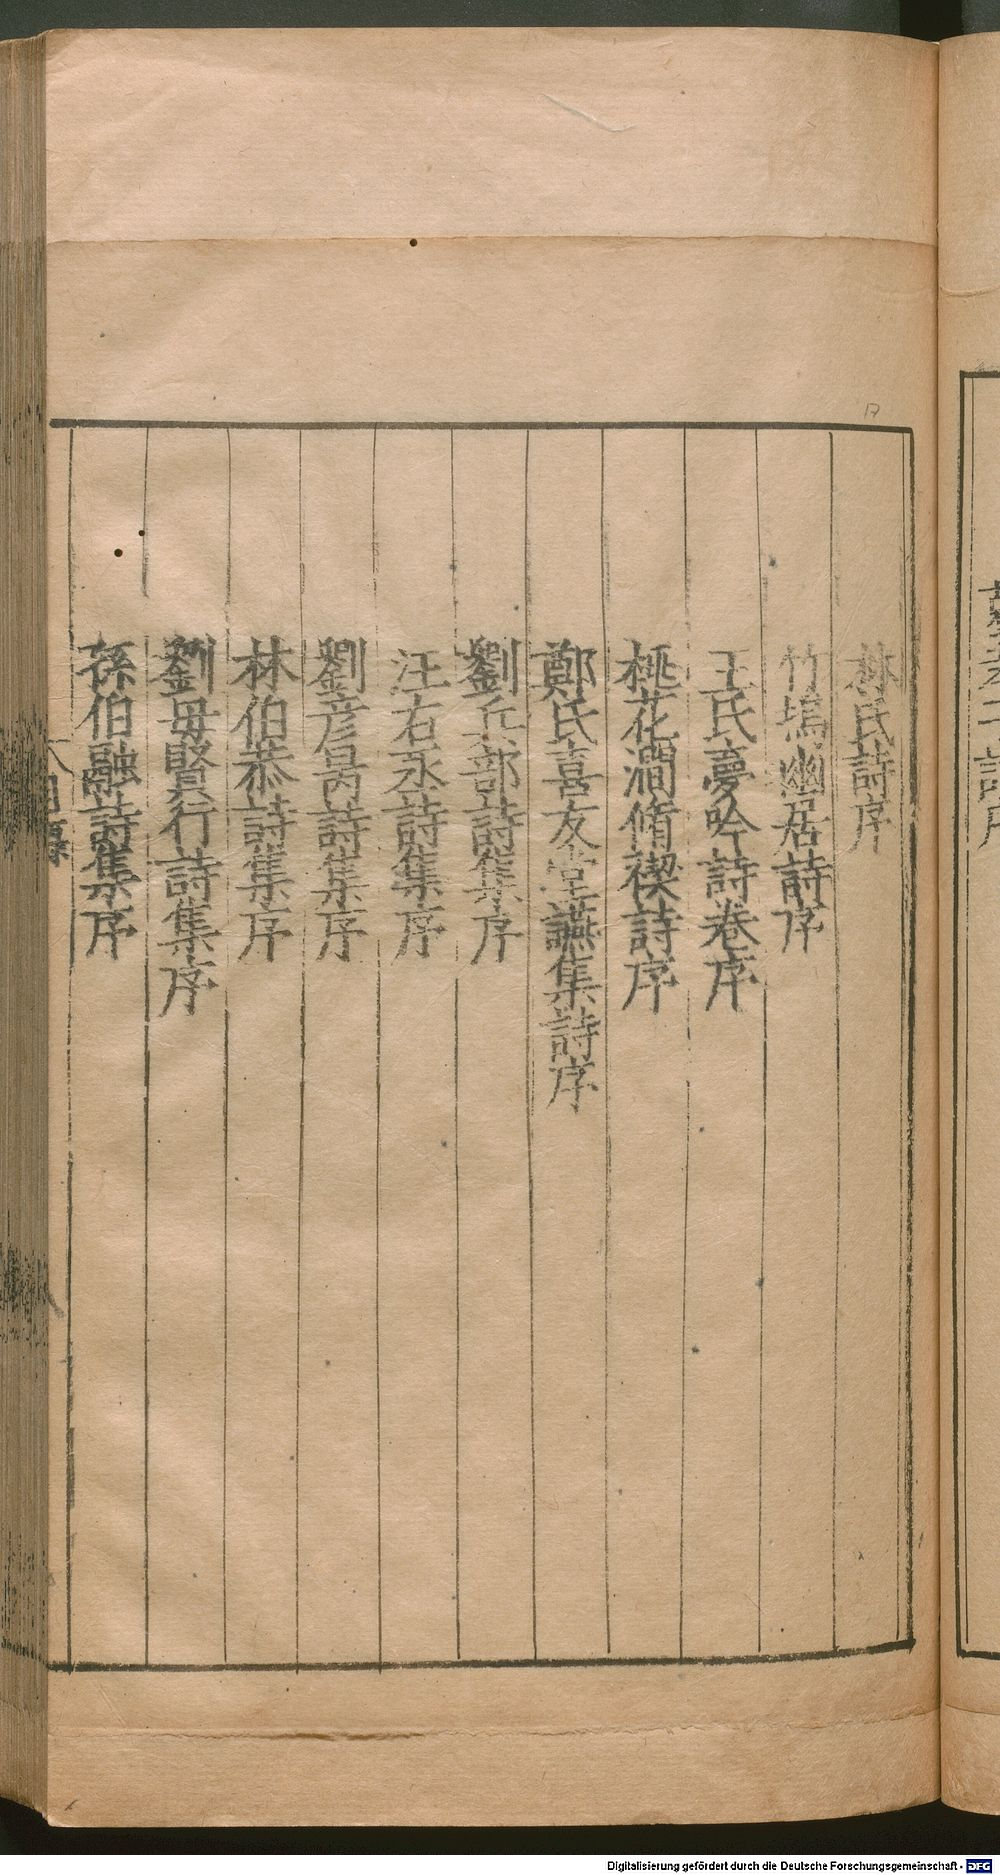 林氏詩序
竹塢幽居詩序
王氏夢吟詩卷序
桃花澗脩禊詩序
鄭氏喜友堂讌集詩序
劉兵部詩集序
汪右丞詩集序
劉彥昺詩集序
林伯恭詩集序
劉母賢行詩集序
孫伯融詩集序
Digitalisierung gefördert durch die Deutsche Forschungsgemeinschaft - DFG